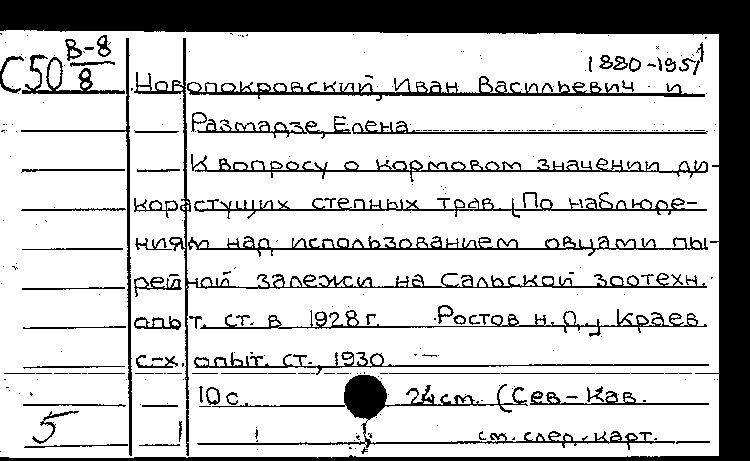 С50 В-8/8
1880-1951
Новопокровский, Иван Васильевич и
Размадзе, Елена
К вопросу о кормовом значении ди-
корастущих степных трав. (По наблюде-
ниям над использованием овцами пы-
рейной залежи на Сальской зоотехн.
опыт. ст. в 1928 г. Ростов н. Д., Краев.
с-х. опыт. ст., 1930. —
10 с. 24 см. (Сев-Кав.
5 см. след. карт.